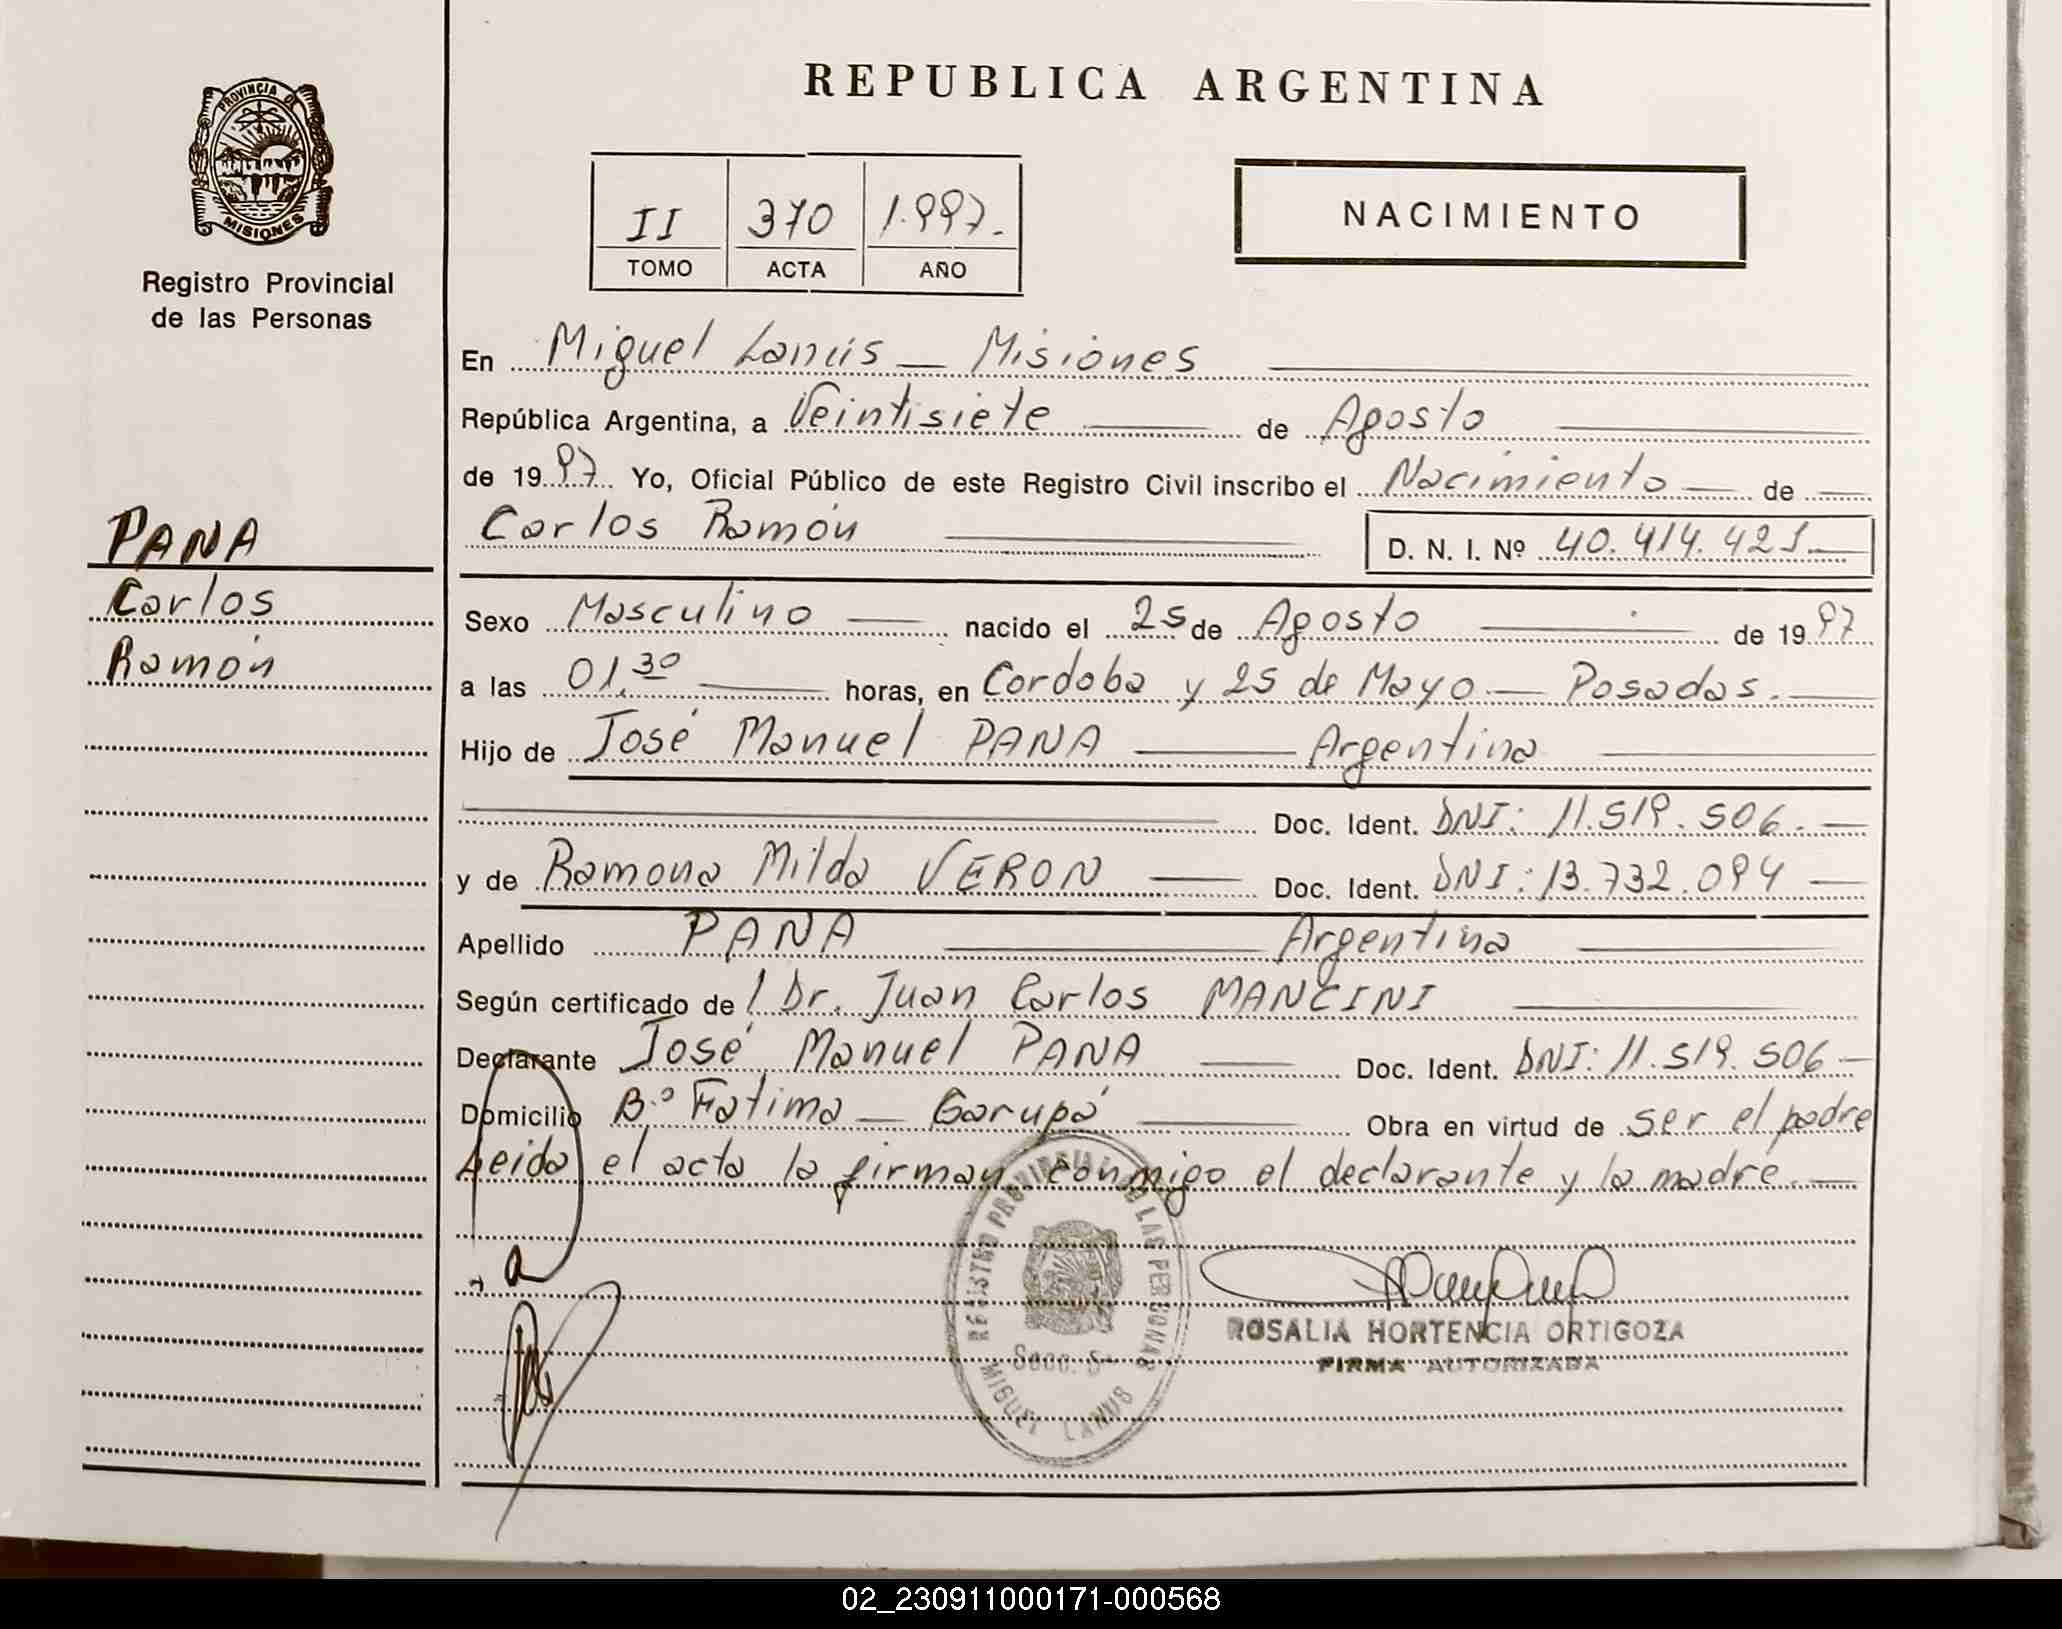 REPUBLICA ARGENTINA
PROVINCIA DE
MISIONES
Registro Provincial
de las Personas
II 370 1.997.
TOMO ACTA AÑO
NACIMIENTO
PANA
Carlos
Ramón
En Miguel Lanús — Misiones
República Argentina, a Veintisiete de Agosto
de 1997 Yo, Oficial Público de este Registro Civil inscribo el Nacimiento — de —
Carlos Ramón D. N. I. Nº 40.414.421.—
Sexo Masculino — nacido el 25 de Agosto — de 1997
a las 01,30 — horas, en Cordoba y 25 de Mayo — Posadas. —
Hijo de José Manuel PANA — Argentina —
Doc. Ident. DNI: 11.519.506. —
y de Ramona Milda VERON — Doc. Ident. DNI: 13.732.094 —
Apellido PANA — Argentina —
Según certificado del Dr. Juan Carlos MANCINI —
Declarante José Manuel PANA — Doc. Ident. DNI: 11.519.506 —
Domicilio Bº Fatima — Garupá — Obra en virtud de ser el padre
Leida el acta la firman conmigo el declarante y la madre. —
REGISTRO PROVINCIAL DE LAS PERSONAS
MIGUEL LANUS
ROSALIA HORTENCIA ORTIGOZA
FIRMA AUTORIZADA
02_230911000171-000568